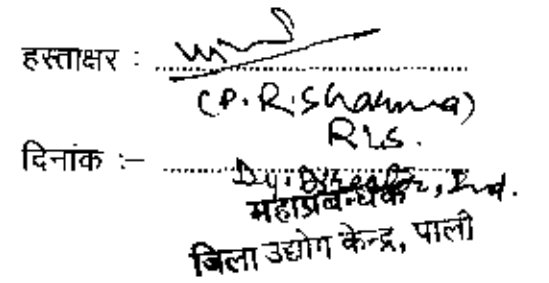 हस्ताक्षर :
(P. R. Sharma)
RIS.
दिनांक :–
Dy. Director, Ind.
महाप्रबन्धक
जिला उद्योग केन्द्र, पाली